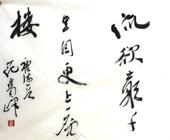 流欲窮千
里目更上一層
樓